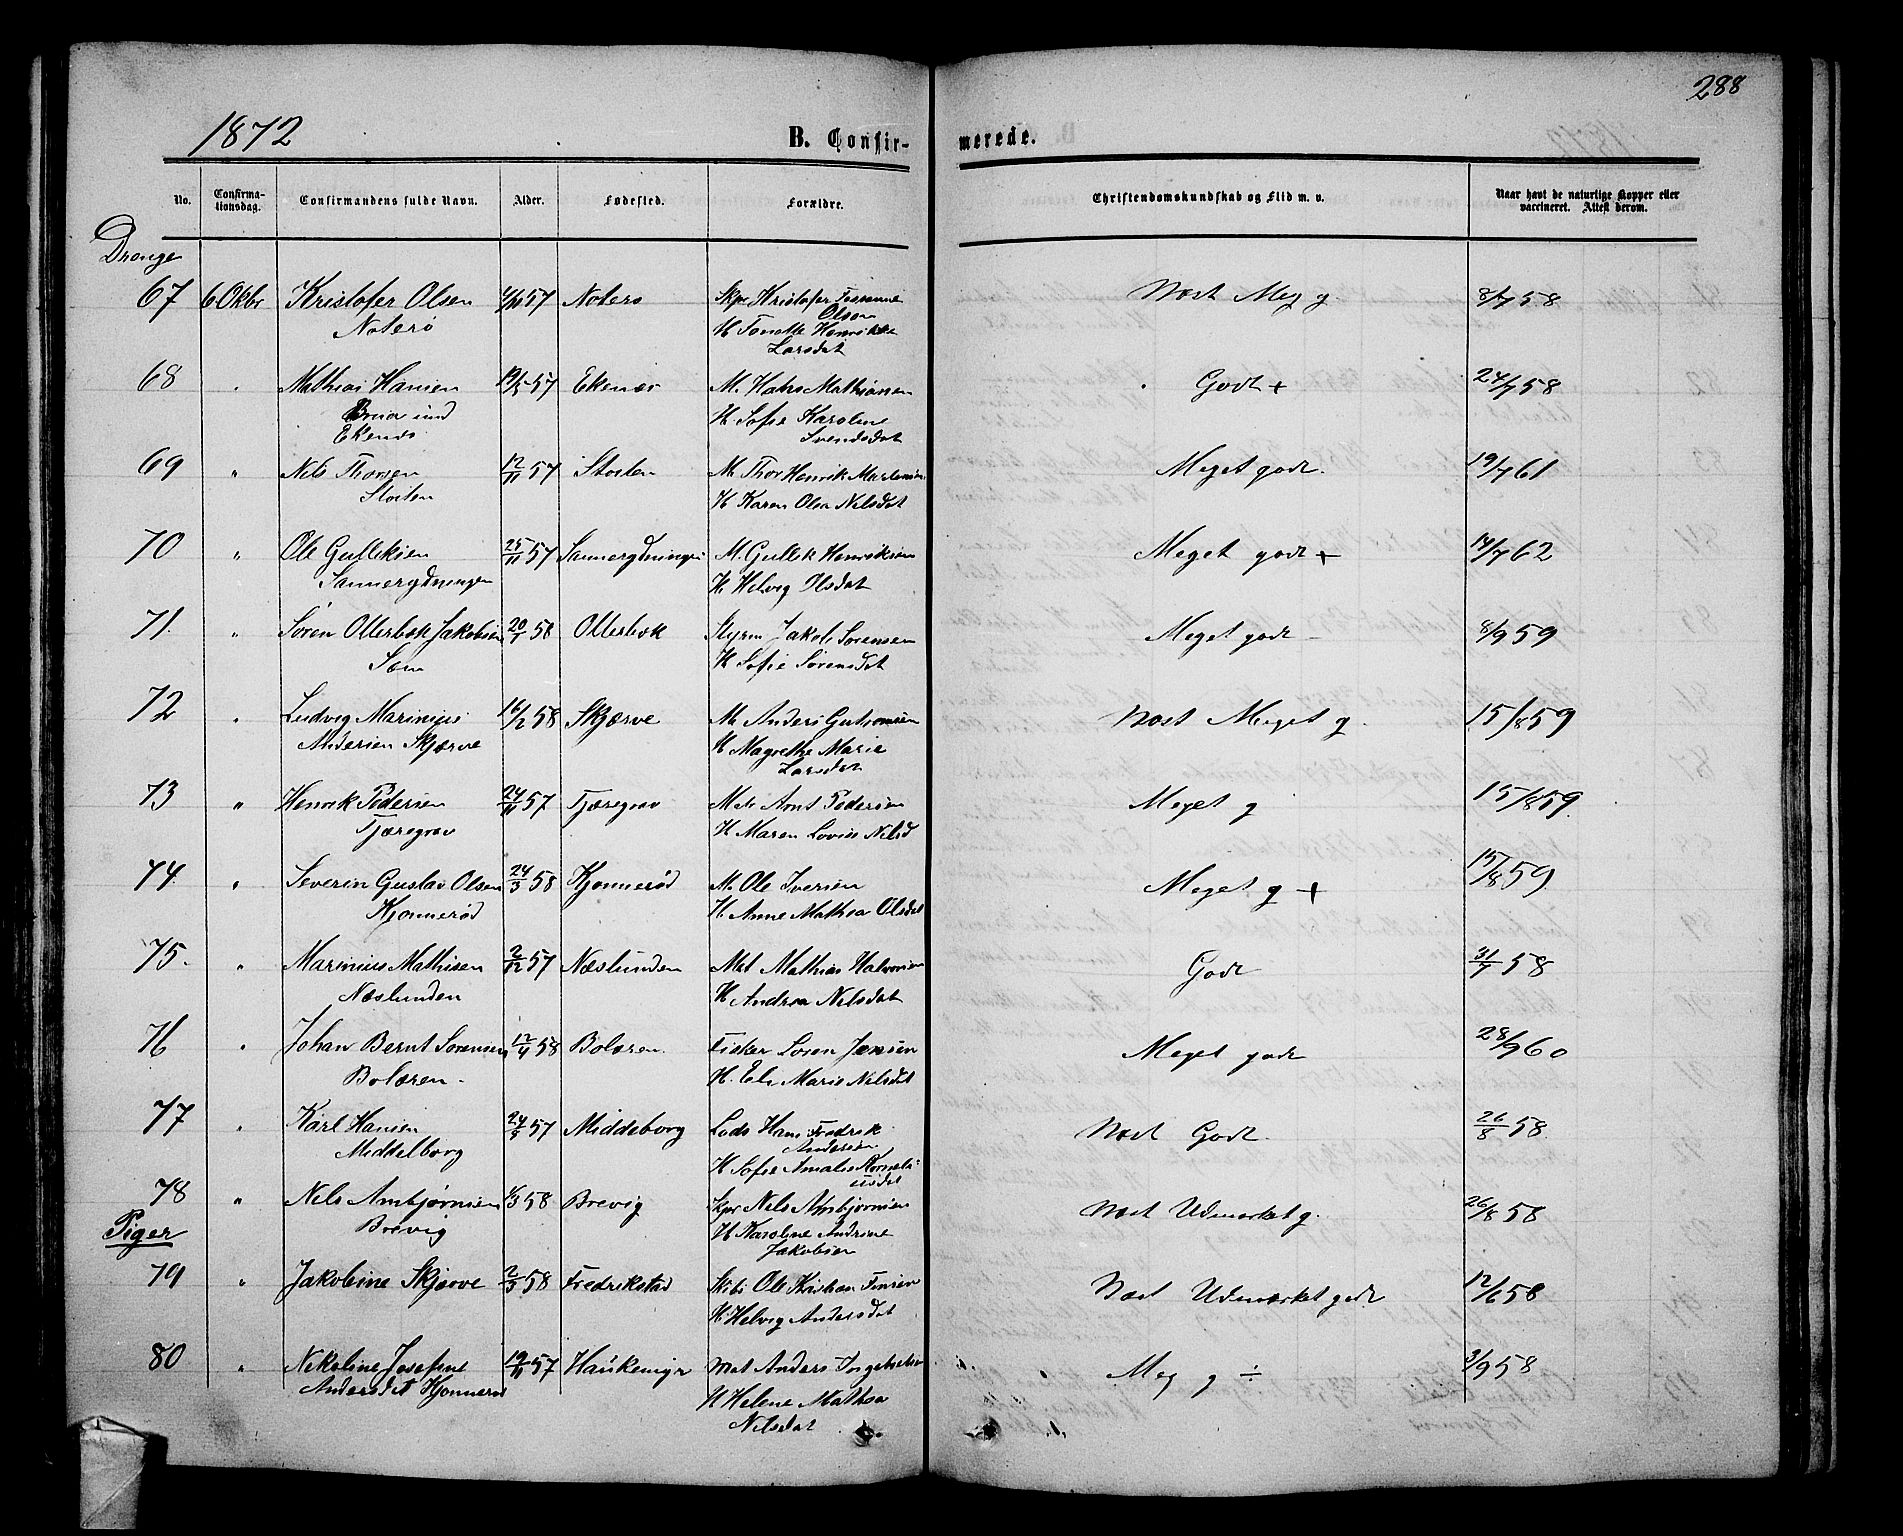 288
1872
B. Confirmerede.
No. Confirmationsdag. Confirmandens fulde Navn. Alder. Fødested. Forældre. Christendomskundskab og Flid m. v. Naar havt de naturlige Kopper eller vaccineret. Attest derom.
Drenge
67 6 Oktbr Kristofer Olsen 57 Noterø Skpr Kristofer Olsen Næst Meg g. 8/7 58
Noterø H Tonette Henrikke
Larsdat
68 Mathias Hansen 19/5 57 Ekenæs M. Hans Mathiassen Godt + 24/7 58
Ekenæs H Sofie Karoline
Svendsdat
69 " Nils Thorsen 12/11 57 Støiten M. Thor Henrik Godt Meget godt. 19/7 61
Støiten H Karen Olea Nilsdat
70 " Ole Gulleksen 25/11 57 Sannerydningen M. Gullek Henriksen Meget godt + 14/7 62
Sannerydningen H. Helvig Olsdat
71. " Søren Ollerbok Jakobsen 20/1 58 Ollerbok Styrm Jakob Sørensen Meget godt 8/9 59
Sem H Sofie Sørensdat
72 " Ludvig Marinius 16/2 58 Skjærve M. Anders Næst Meget g. 15/8 59
Andersen Skjærve H Magrethe Marie
Larsdat
73 " Henrik Pedersen 24/11 57 Tjæregrav Mat Arnt Pedersen Meget g 15/8 59.
Tjæregrav H Maren Lovise Nilsd
74 " Severin Gustav Olsen 24/3 58 Kjønnerød M. Ole Iversen Meget g + 15/8 59
Kjønnerød H. Anne Mathea Olsdat
75. " Marinius Mathisen 2/12 57 Næslunden Mat Mathias Halvorsen Godt 31/7 58
Næslunden H Andrea Nilsdat
76 " Johan Bernt Sørensen 12/4 58 Bolæren. Fisker Søren Jensen Meget godt 28/9 60
Bolæren. H. Else Marie Nilsdat
77 " Karl Hansen 57 Middelborg Lods Hans Fredrik Næst Godt. 26/8 58.
Middelborg Andersen
H Sofie Amalie Kornelius
dat
78 " Nils Ambjørnsen 1/3 58 Brevig Skpr Nils Ambjørnsen Næst Udmærket g. 26/8 58
Brevig H Karoline Andrine
Jakobsen
Piger
79 " Jakobine Skjærve 2/3 58 Fredrikstad Skibs Ole Kristian Næst Udmærket godt 12/6 58
H. Helvig Andersdat
80 " Nikoline Josefine 19/11 57 Haukemyr Mat Anders Meg g ÷ 3/9 58
Andersdat H Helene Mathea
Nilsdat